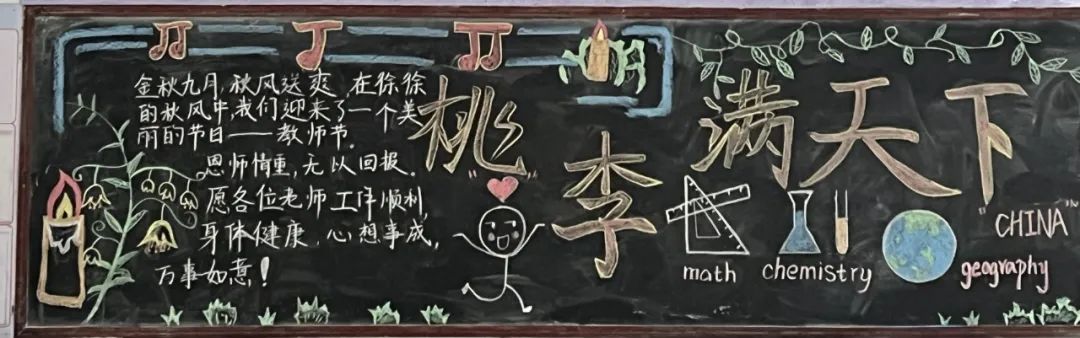 金秋九月,秋风送爽,在徐徐
的秋风中,我们迎来了一个美
丽的节日——教师节。
恩师情重,无以回报。
愿各位老师工作顺利,
身体健康,心想事成,
万事如意!
桃李满天下
math
chemistry
"CHINA"
geography